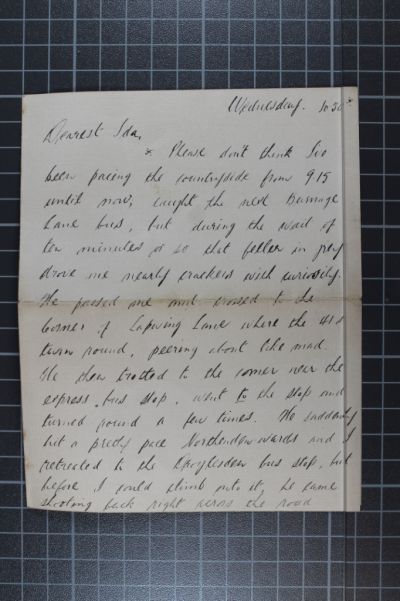 Wednesday. 10.30 x
Dearest Ida,
x Please don't think I've
been pacing the countryside from 9.15
until now, caught the next Burnage
Lane bus, but during the wait of
ten minutes or so that feller in grey
drove me nearly crackers with curiosity.
He passed me and crossed to the
corner of Lapwing Lane where the 41s
turn round, peering about like mad.
He then trotted to the corner near the
express bus stop, went to the stop and
turned round a few times. He suddenly
hit a pretty pace Northenden wards and I
retreated to the Droylesden bus stop, but
before I could climb onto it, he came
shooting back right across the road